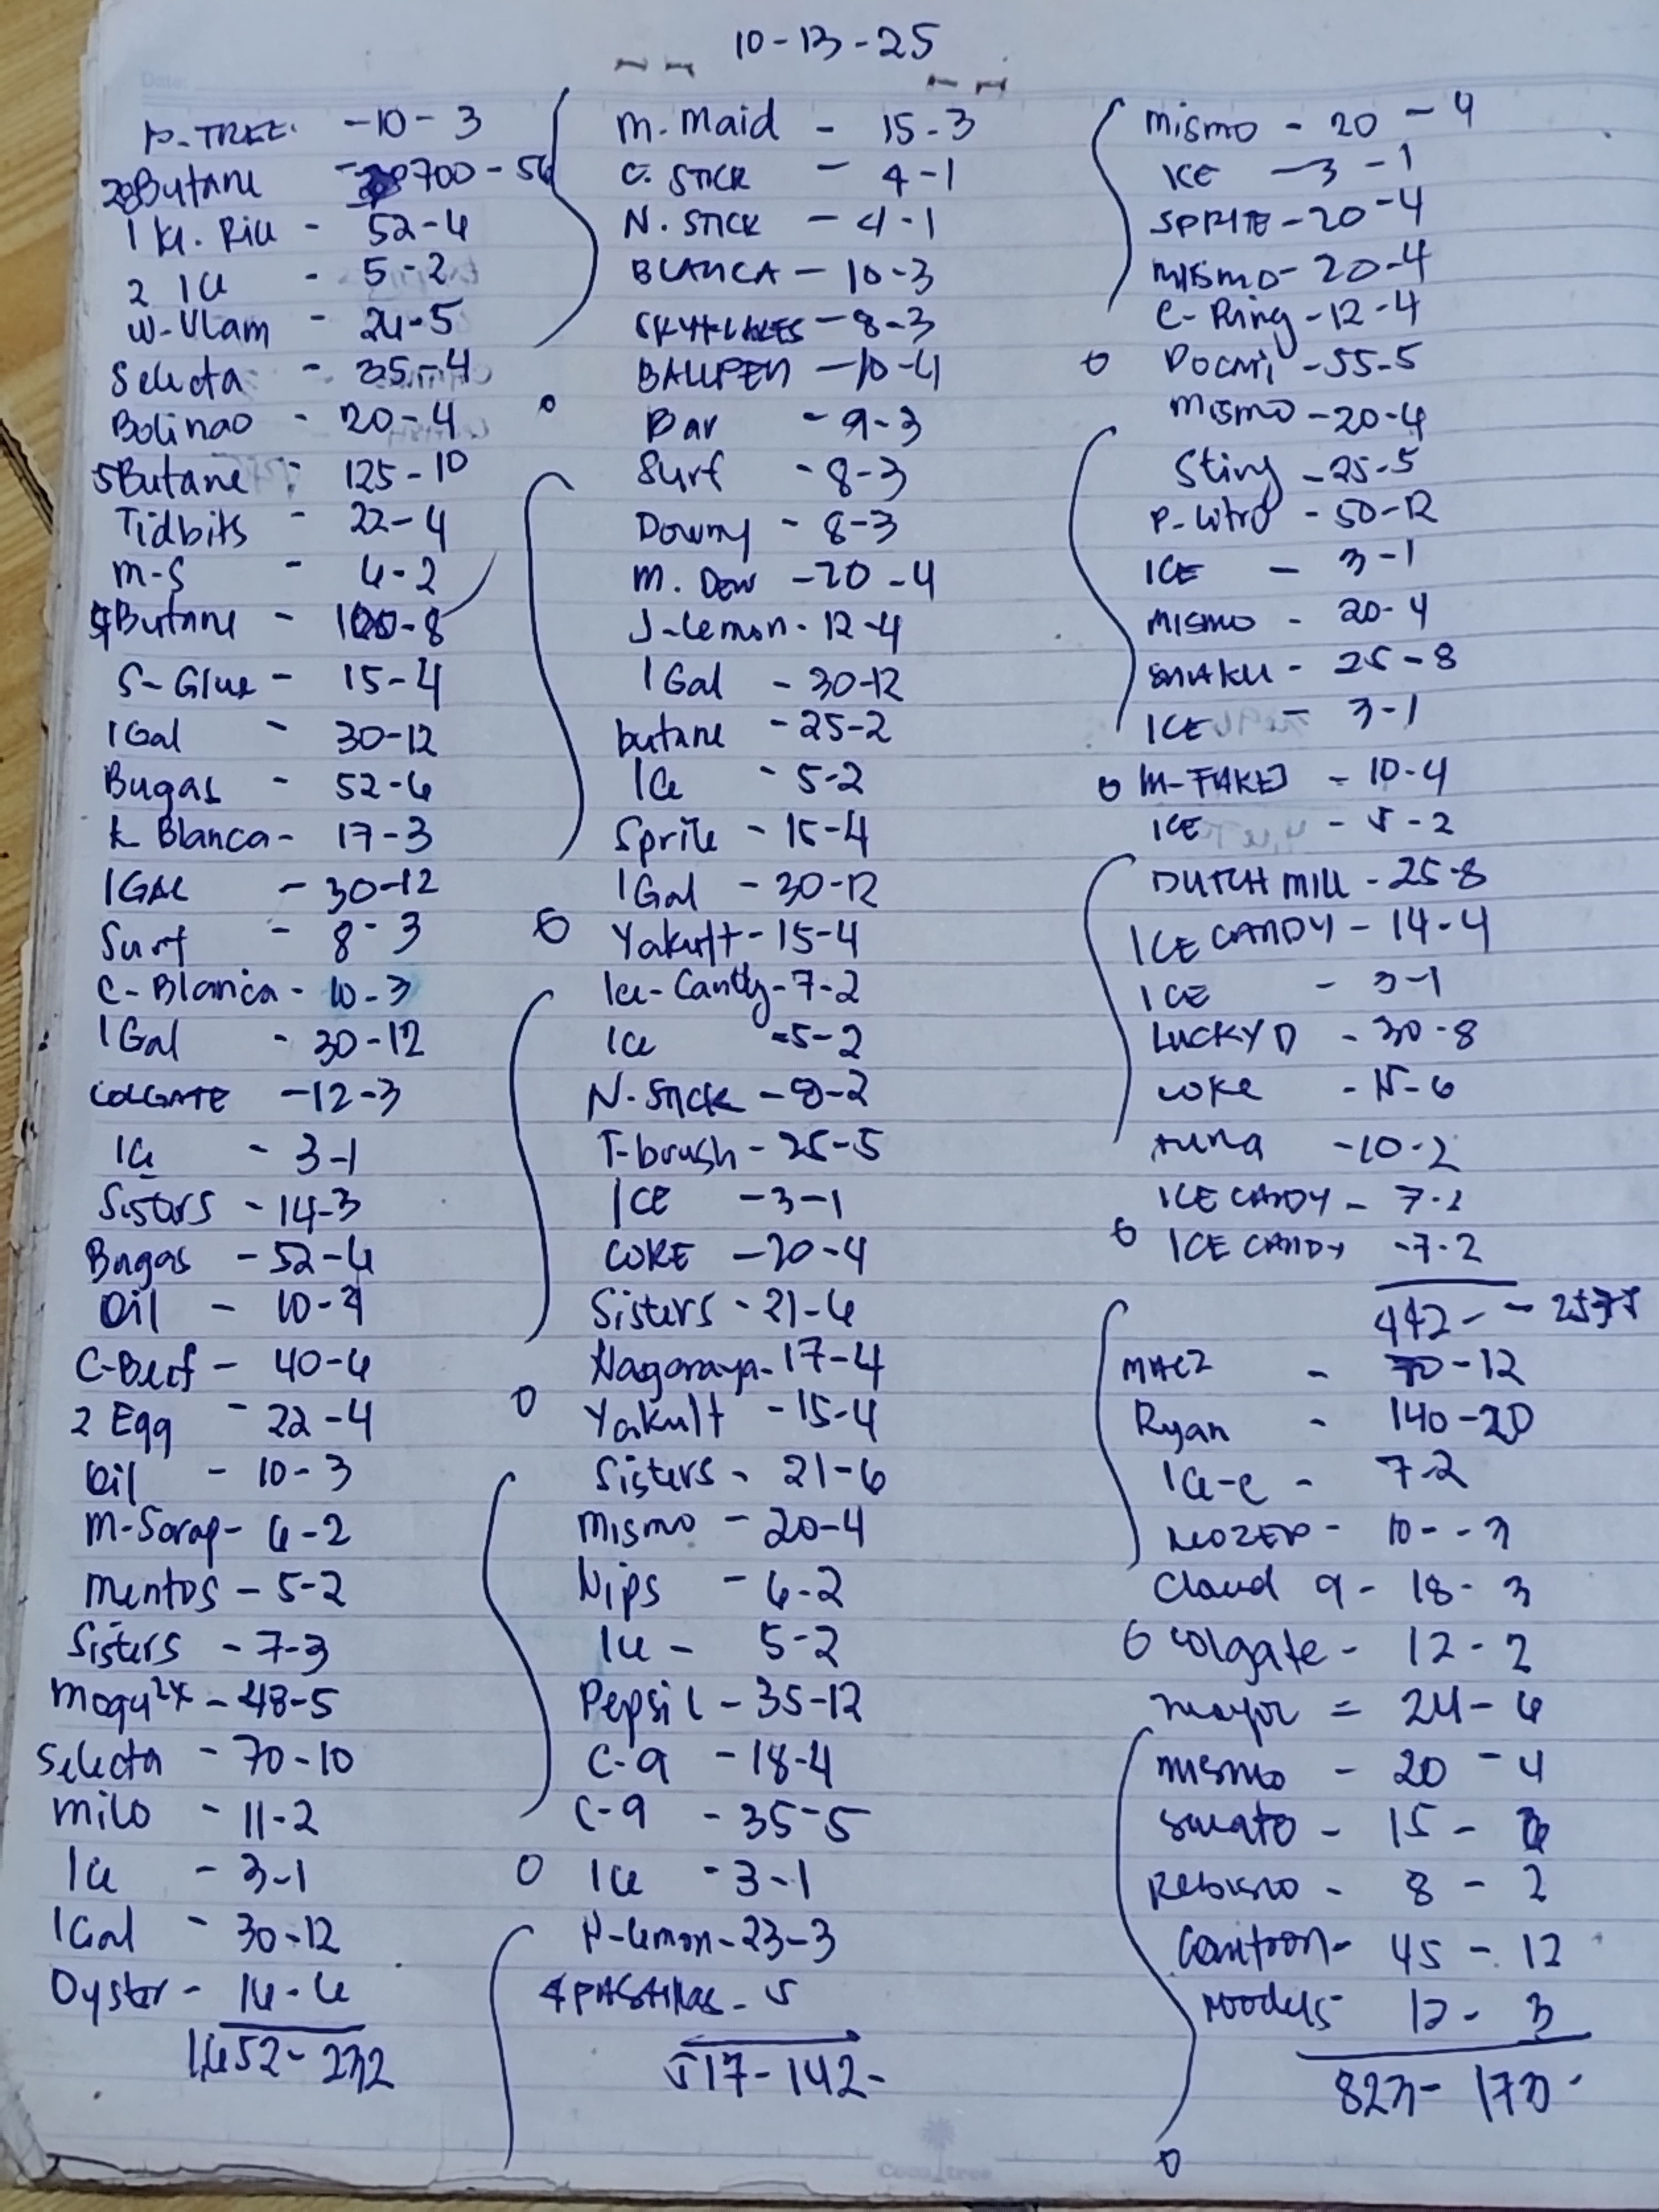 10-13-25
P-TREE. -10-3
28Butane -700-56
1 kl. Rice - 52-6
2 Ice - 5-2
W-Ulam - 24-5
Selecta - 35-4
Bolinao - 20-4
5Butane - 125-10
Tidbits - 22-4
M-S - 6-2
4Butane - 100-8
S-Glue - 15-4
1Gal - 30-12
Bugas - 52-6
K Blanca - 17-3
1GAL - 30-12
Surf - 8-3
C-Blanca - 10-3
1Gal - 30-12
COLGATE -12-3
Ice - 3-1
Sisters - 14-3
Bugas - 52-6
Oil - 10-3
C-Beef - 40-6
2 Egg - 22-4
Oil - 10-3
M-Sarap - 6-2
Mentos - 5-2
Sisters - 7-3
Mogu2x - 48-5
Selecta - 70-10
Milo - 11-2
Ice - 3-1
1Gal - 30-12
Oyster - 16-6
1,652-232
M. Maid - 15-3
C. STICK - 4-1
N. STICK - 4-1
BLANCA - 10-3
SKYFLAKES - 8-3
BALLPEN - 10-4
Bar - 9-3
Surf - 8-3
Downy - 8-3
M. Dew - 20-4
J-Lemon - 12-4
1Gal - 30-12
butane - 25-2
Ice - 5-2
Sprite - 15-4
1Gal - 30-12
Yakult - 15-4
Ice-Candy - 7-2
Ice - 5-2
N-Stick - 8-2
T-brush - 25-5
ICE - 3-1
COKE - 20-4
Sisters - 21-6
Nagaraya - 17-4
Yakult - 15-4
Sisters - 21-6
Mismo - 20-4
Nips - 6-2
Ice - 5-2
Pepsi L - 35-12
C-9 - 18-4
C-9 - 35-5
Ice - 3-1
H-Lemon - 23-3
4 PASTILLas - 5
517-142-
Mismo - 20-4
ICE - 3-1
SPRITE - 20-4
Mismo - 20-4
C-Ring - 12-4
Docmi - 55-5
Mismo - 20-4
Sting - 25-5
P-Litro - 50-12
ICE - 3-1
Mismo - 20-4
SNAKU - 25-8
ICE - 3-1
ICE - 5-2
DUTCH MILL - 25-8
ICE CANDY - 14-4
ICE - 3-1
LUCKY D - 30-8
COKE - 15-6
tuna - 10-2
ICE CANDY - 7-2
ICE CANDY - 7-2
442-
70-12
Ryan - 140-20
Ice-C - 7-2
NEOZEP - 10--3
Cloud 9 - 18-3
Colgate - 12-2
mayor = 24-6
Mismo - 20-4
15-
Rebisco - 8-2
Canton - 45-12
noodles 12-3
823-173-